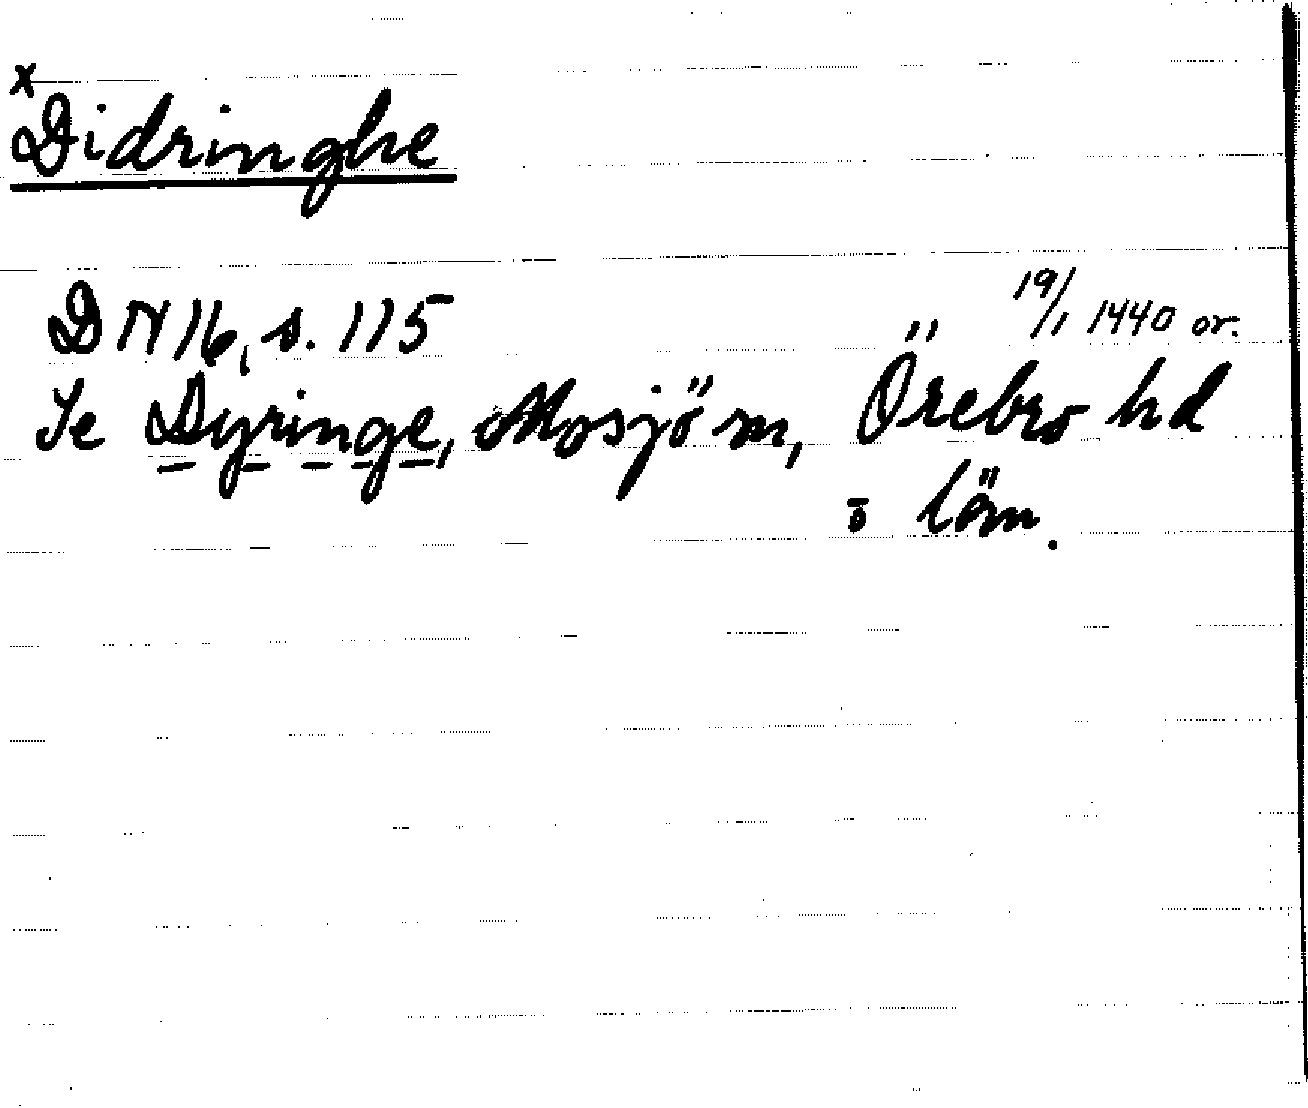 x
Didringhe
DN 16, s. 115 19/1 1440 or.
Se Dyringe, Mosjö sn, Örebro hd
o län.